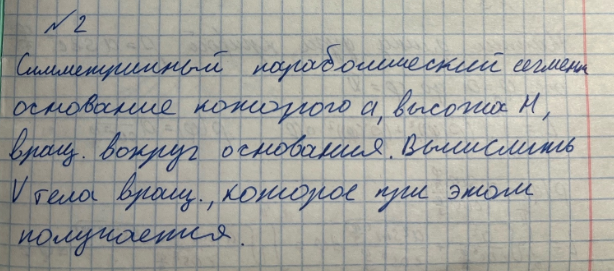 №2
Симметричный параболический сегмент
основание которого a, высота H,
вращ. вокруг основания. Вычислить
V тела вращ., которое при этом
получается.